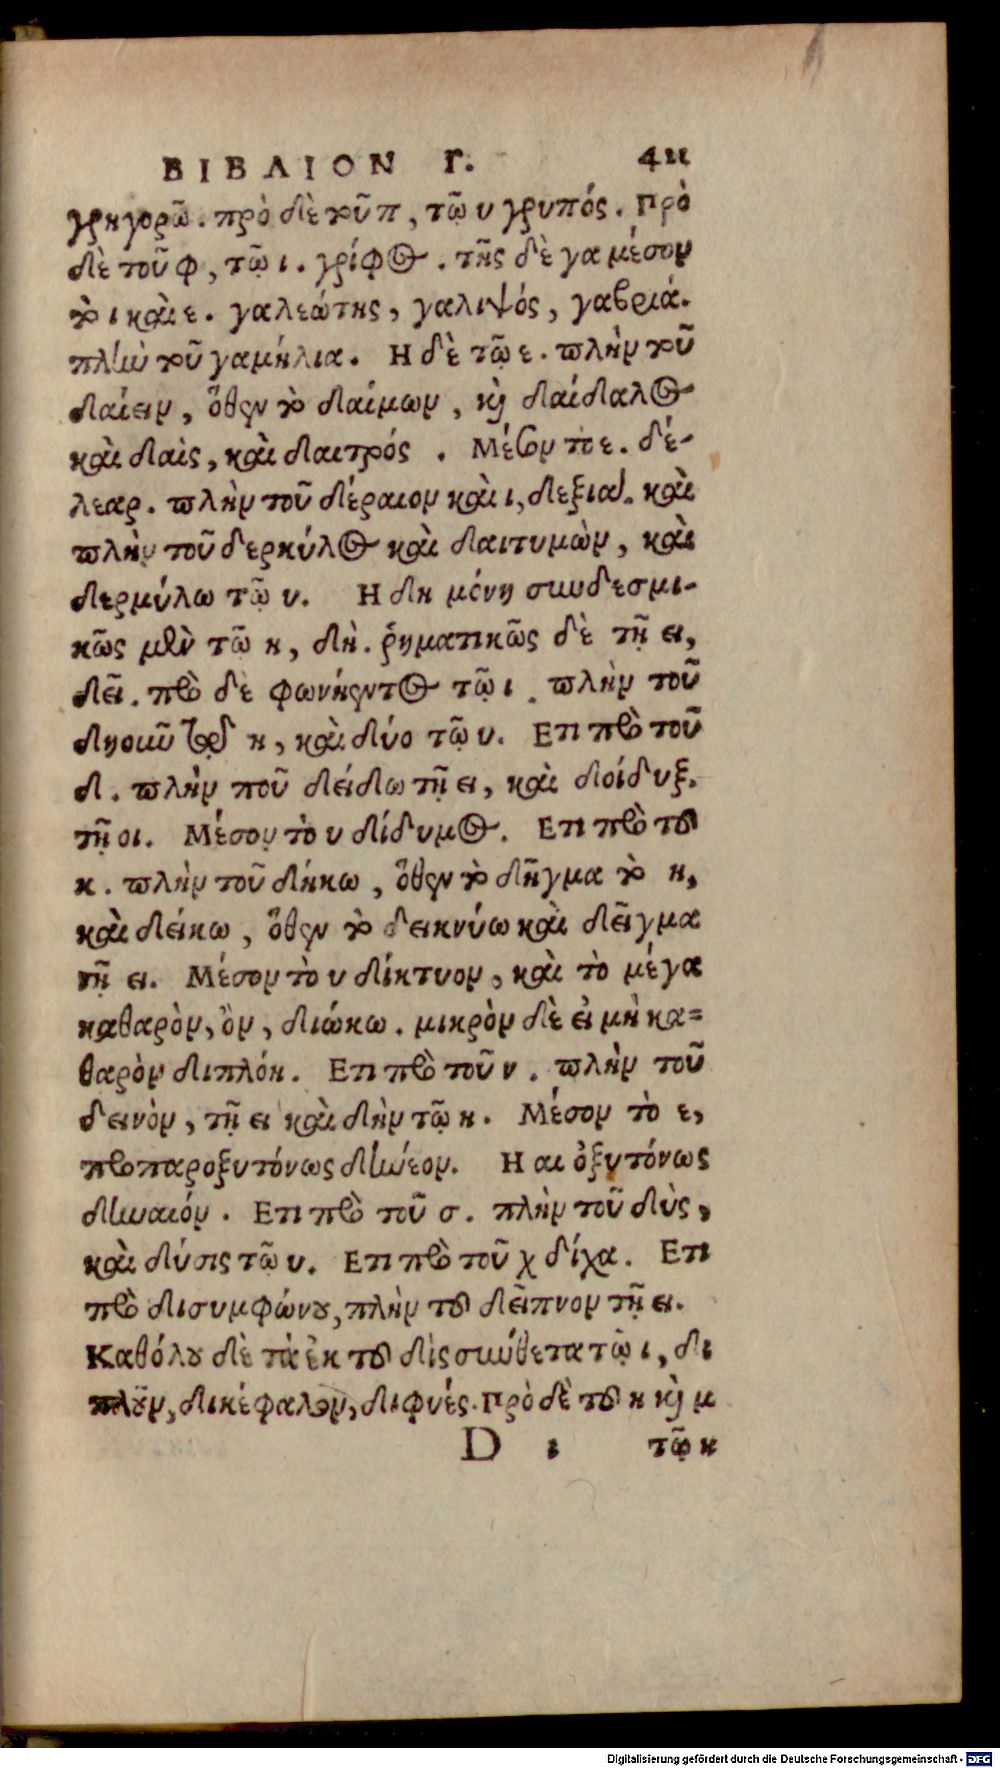 ΒΙΒΛΙΟΝ Γ. 411
γρηγορῶ. πρὸ δὲ τοῦ π, τῷ υ γρυπός. Πρὸ
δὲ τοῦ φ, τῷ ι. γρίφος. τῆς δὲ γα μέσον
τὸ ι καὶ ε. γαλεώτης, γαλιψός, γαβριά.
πλὴν τοῦ γαμήλια. Η δὲ τῷ ε. πλὴν τοῦ
δαίειν, ὅθεν τὸ δαίμων, καὶ δαίδαλος
καὶ δαὶς, καὶ δαιτρός. Μέσον τὸ ε. δέ-
λεαρ. πλὴν τοῦ δέραιον καὶ ι, δεξιαί. καὶ
πλὴν τοῦ δερκύλος καὶ δαιτυμὼν, καὶ
δερμύλω τῷ υ. Η δη μόνη συνδεσμι-
κῶς μὲν τῷ η, δὴ. ῥηματικῶς δὲ τῇ ει,
δεῖ. πρὸ δε φωνήεντος τῷ ι. πλὴν τοῦ
δηοιῦ η, καὶ δύο τῷ υ. Ετι πρὸ τοῦ
δ. πλὴν ποῦ δείδω τῇ ει, καὶ δοίδυξ.
τῇ οι. Μέσον τὸ υ δίδυμος. Ετι πρὸ τοῦ
κ. πλὴν τοῦ δήκω, ὅθεν τὸ δῆγμα τὸ η,
καὶ δείκω, ὅθεν τὸ δεικνύω καὶ δεῖγμα
τῇ ει. Μέσον τὸ υ δίκτυον, καὶ τὸ μέγα
καθαρὸν, ὂν, διώκω. μικρὸν δὲ εἰ μὴ κα=
θαρὸν διπλόη. Ετι πρὸ τοῦ ν. πλὴν τοῦ
δεινὸν, τῇ ει καὶ δὴν τῷ η. Μέσον τὸ ε,
προπαροξυτόνως δήνεον. Η αι ὀξυτόνως
δηναιόν. Ετι πρὸ τοῦ σ. πλὴν τοῦ δὺς,
καὶ δύσις τῷ υ. Ετι πρὸ τοῦ χ δίχα. Ετι
πρὸ δισυμφώνου, πλὴν τοῦ δεῖπνον τῇ ει.
Καθόλου δὲ τὰ ἐκ τοῦ δὶς σύνθετα τῷ ι, δι
πλοῦν, δικέφαλον, διφυές. Πρὸ δὲ τοῦ κ καὶ μ
D 1 τῷ η
Digitalisierung gefördert durch die Deutsche Forschungsgemeinschaft - DFG